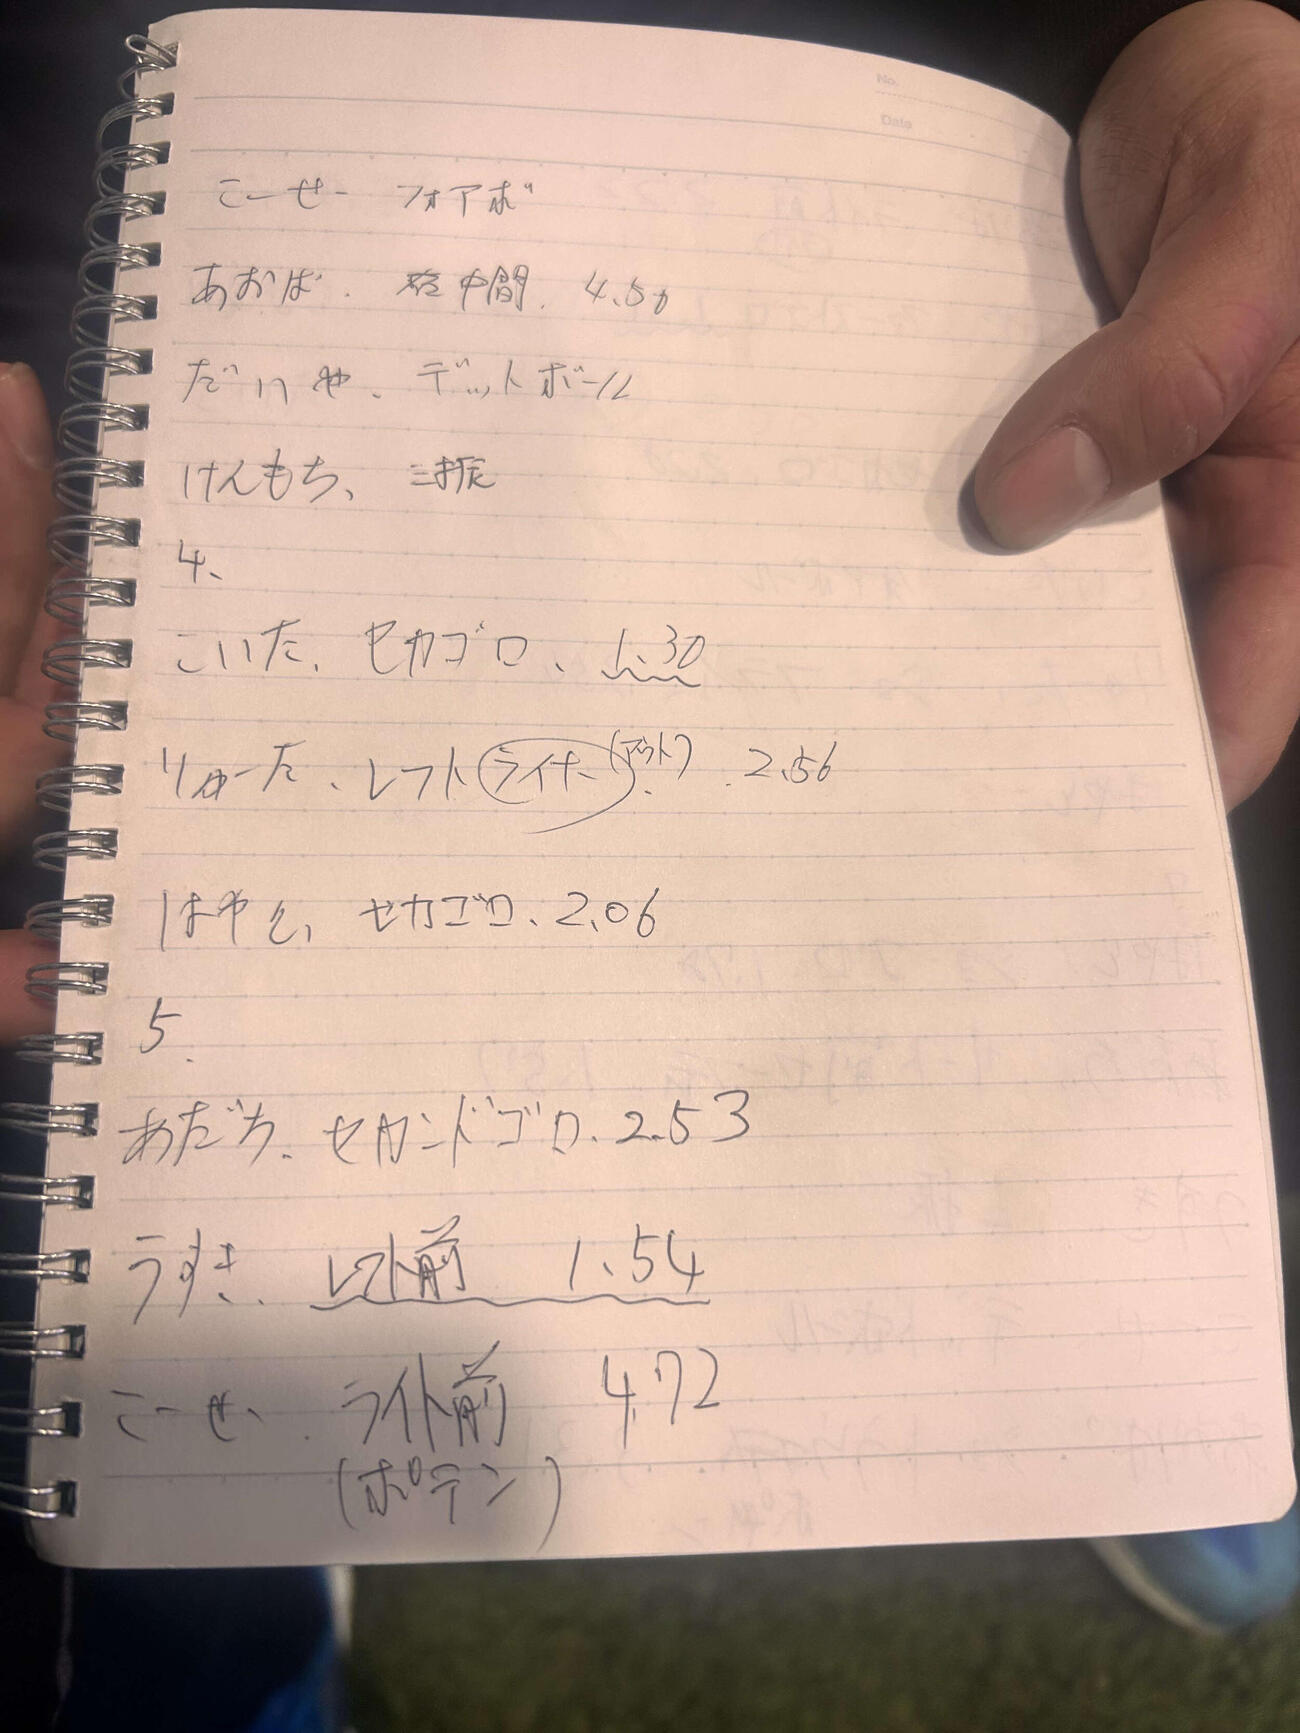 No.
Date
こーせー フォアボ
あおば. 左中間. 4.50
だいや. デットボール
けんもち、三振
4、
こいた、セカゴロ、1.30
りゅーた、レフトライナー(アウト). 2.56
はやと、セカゴロ、2.06
5.
あだち、セカンドゴロ. 2.53
うすき、レフト前 1.54
こーせー. ライト前 4.72
(ポテン)